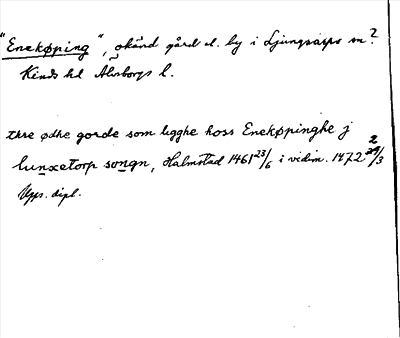 "Eneköping", okänd gård el. by i Ljungsarps sn?
Kinds hd Älvsborgs l.
thre ødhe gorde som ligghe hoss Enekøpinghe j
lunxetorp songn, Halmstad 1461 23/6 i vidim. 1472 2/3
Upps. dipl.